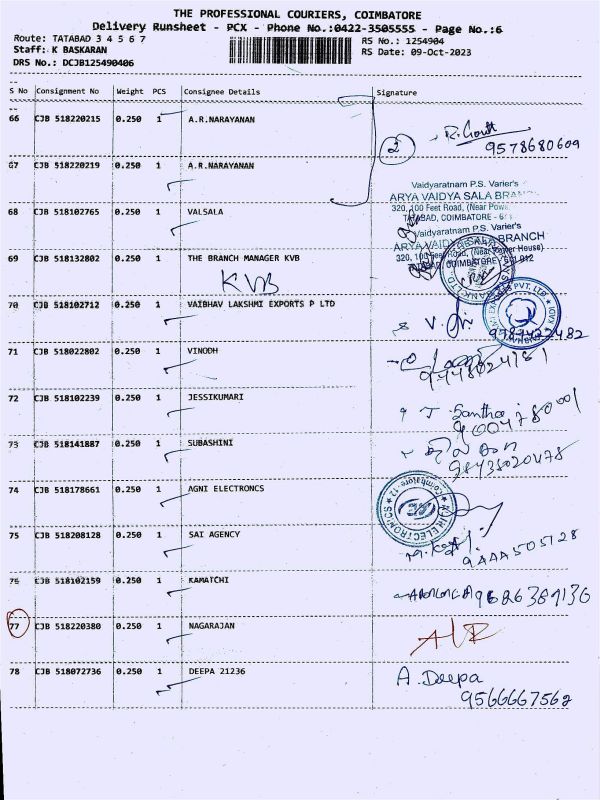 THE PROFESSIONAL COURIERS, COIMBATORE
Delivery Runsheet - PCX - Phone No.:0422-3505555 - Page No.:6
Route: TATABAD 3 4 5 6 7
RS No.: 1254904
Staff: K BASKARAN
RS Date: 09-Oct-2023
DRS No.: DCJB125490406
S No Consignment No Weight PCS Consignee Details Signature
66 CJB 518220215 0.250 1 A.R.NARAYANAN
2
9578680609
67 CJB 518220219 0.250 1 A.R.NARAYANAN
Vaidyaratnam P.S. Varier's
ARYA VAIDYA SALA BRAN
320, 100 Feet Road, (Near Powe
TATABAD, COIMBATORE - 6
68 CJB 518102765 0.250 1 VALSALA
Vaidyaratnam P.S. Varier's
BRANCH
69 CJB 518132802 0.250 1 THE BRANCH MANAGER KVB
KVB
70 CJB 518102712 0.250 1 VAIBHAV LAKSHMI EXPORTS P LTD
71 CJB 518022802 0.250 1 VINODH
72 CJB 518102239 0.250 1 JESSIKUMARI
73 CJB 518141887 0.250 1 SUBASHINI
74 CJB 518178661 0.250 1 AGNI ELECTRONCS
75 CJB 518208128 0.250 1 SAI AGENCY
76 CJB 518102159 0.250 1 KAMATCHI
9626389136
77 CJB 518220380 0.250 1 NAGARAJAN
78 CJB 518072736 0.250 1 DEEPA 21236
A. Deepa
9566667562